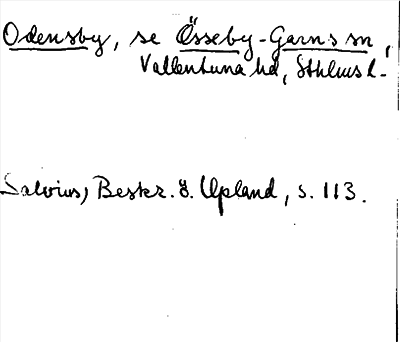 Odensby, se Össeby-Garns sn,
Vallentuna hd, Sthlms l.
Salvius, Beskr. ö. Upland, s. 113.